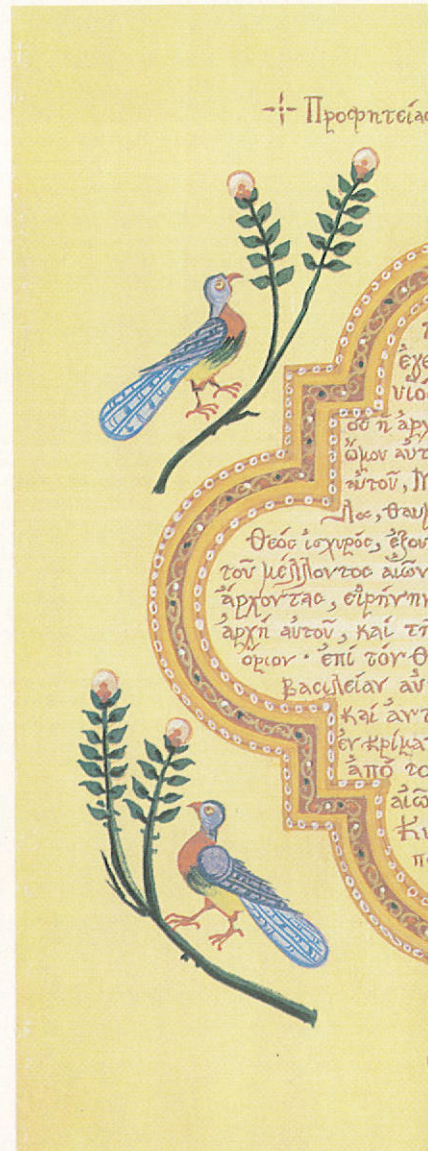 Προφητείας
ἐγε
υἱός
οὗ ἡ ἀρχ
ὤμου αὐτ
αὐτοῦ, Μ
λος, θαυμ
Θεός ἰσχυρός, ἐξου
τοῦ μέλλοντος αἰῶν
ἄρχοντας, εἰρήνην
ἀρχή αὐτοῦ, καί τῆ
ὅριον · ἐπί τόν Θ
Βασιλείαν αὐ
καί ἀντ
ἐν κρίματ
ἀπό το
αἰῶ
Κυ
πο